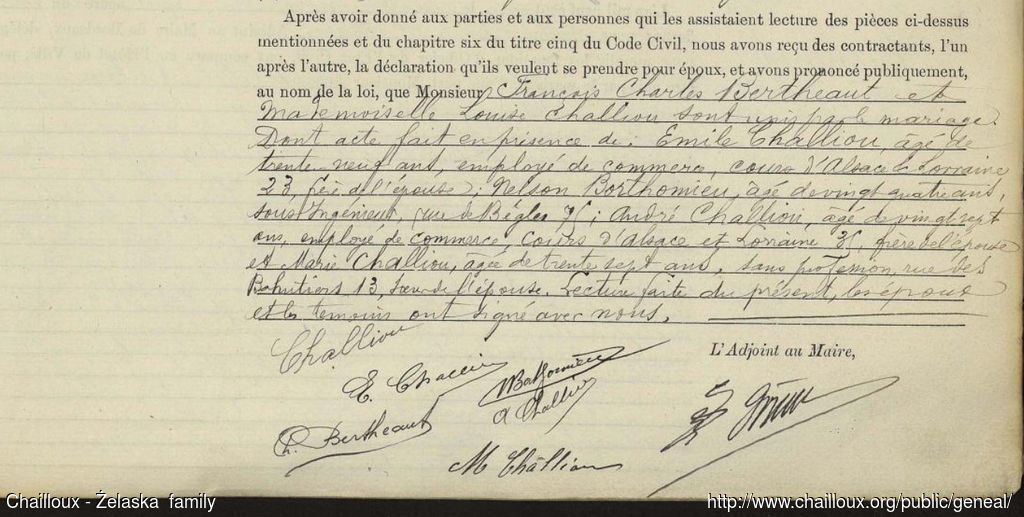 Après avoir donné aux parties et aux personnes qui les assistaient lecture des pièces ci-dessus
mentionnées et du chapitre six du titre cinq du Code Civil, nous avons reçu des contractants, l'un
après l'autre, la déclaration qu'ils veulent se prendre pour époux, et avons prononcé publiquement,
au nom de la loi, que Monsieur François Charles Bertheaut et
Mademoiselle Louise Challiou sont unis par le mariage.
Dont acte fait en présence de : Emile Challiou, âgé de
trente neuf ans, employé de commerce, cours d'Alsace & Lorraine
23, frère de l'épouse ; Nelson Borthomieu, âgé de vingt quatre ans,
sous Ingénieur, rue de Bègles ; André Challiou, âgé de vingt sept
ans, employé de commerce, cours d'Alsace et Lorraine, frère de l'épouse
et Marie Challiou, âgée de trente sept ans, sans profession, rue des
Bahutiers 13, sœur de l'épouse. Lecture faite du présent, les époux
et les témoins ont signé avec nous.
Challiou
L'Adjoint au Maire,
E. Challiou
A Challiou
Ch. Bertheaut
M Challiou
Chailloux - Żelaska family
http://www.chailloux.org/public/geneal/